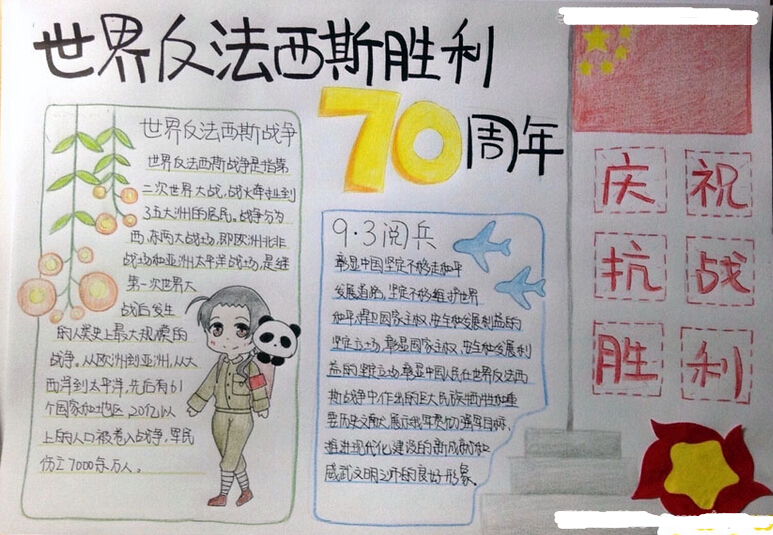 世界反法西斯胜利
70周年
世界反法西斯战争
世界反法西斯战争是指第
二次世界大战,战火牵扯到
3五大洲的居民。战争分为
西,东两大战场,即欧洲北非
战场和亚洲太平洋战场,是继
第一次世界大
战后发生
的人类史上最大规模的
战争。从欧洲到亚洲,从大
西洋到太平洋,先后有61
个国家和地区、20亿以
上的人口被卷入战争,军民
伤亡7000余万人。
9·3阅兵
彰显中国坚定不移走和平
发展道路,坚定不移维护世界
和平,捍卫国家主权,安全和发展利益的
坚定立场,彰显国家主权,安全和发展利
益的坚定立场,彰显中国人民在世界反法西
斯战争中作出的巨大民族牺牲和重
要历史贡献,展示我军
推进现代化建设的新成就和
威武文明之师的良好形象。
庆祝
抗战
胜利